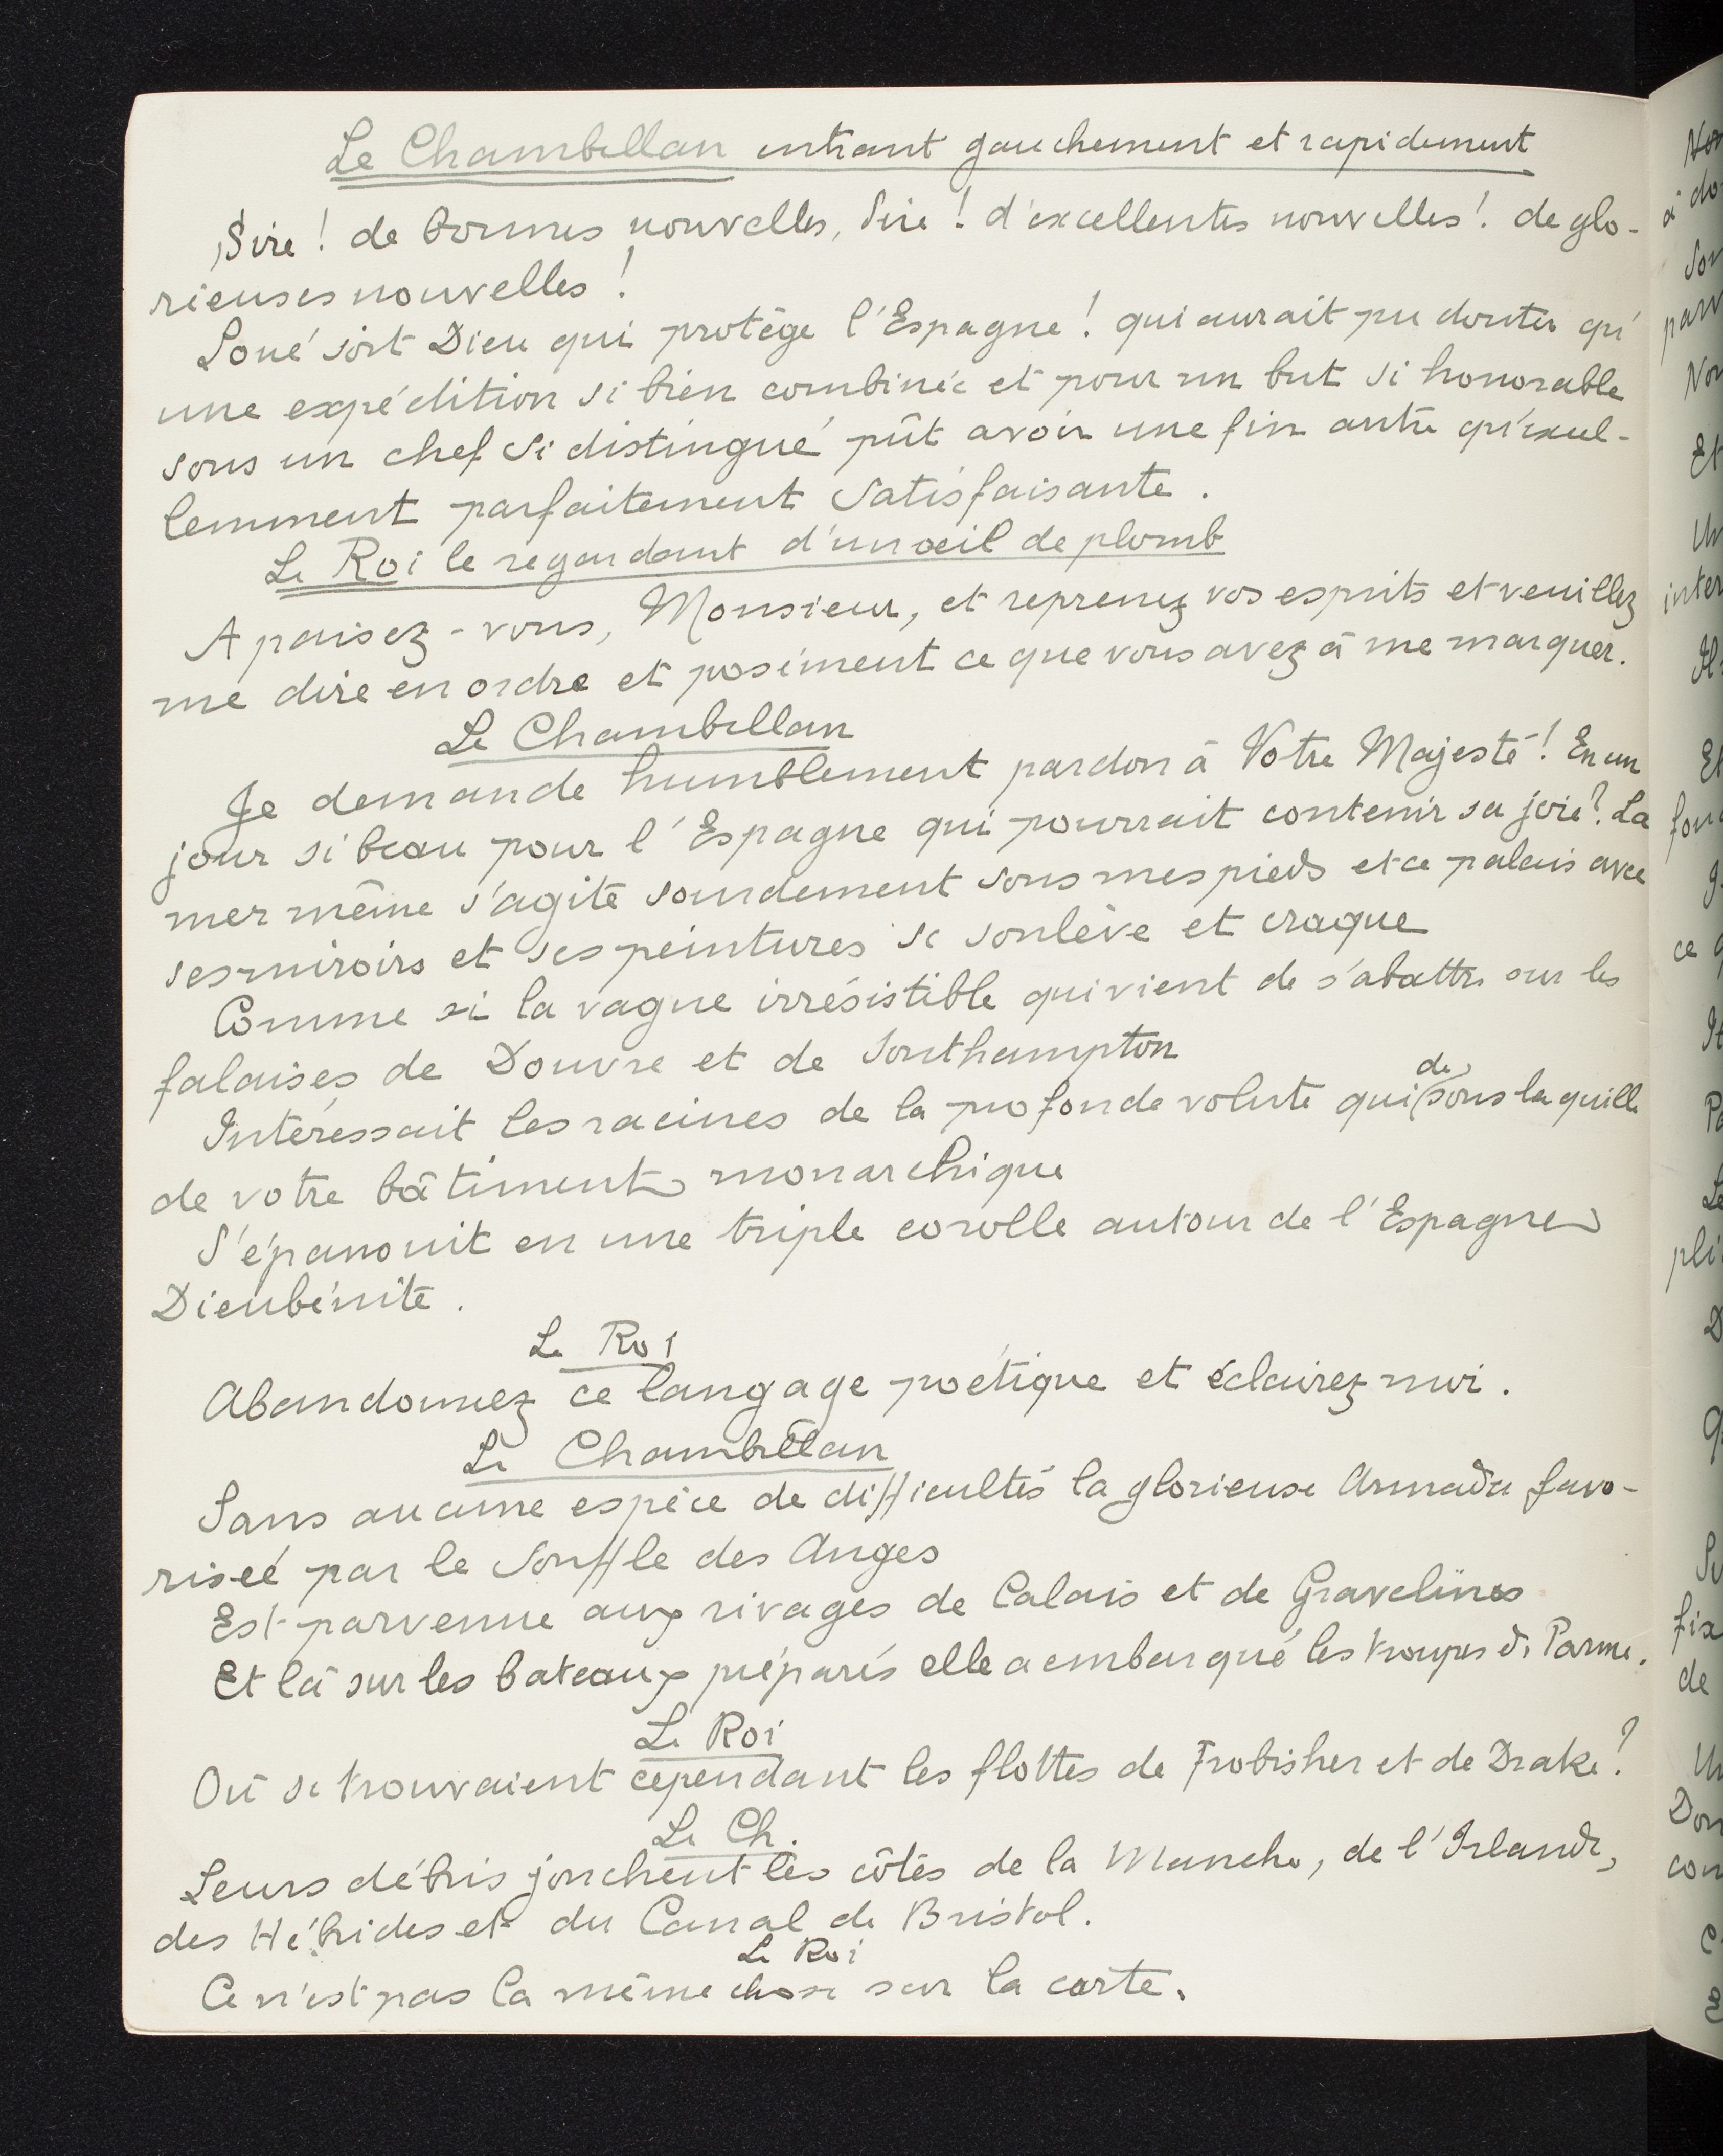 Le Chambellan entrant gauchement et rapidement
Sire ! de bonnes nouvelles, Sire ! d'excellentes nouvelles ! de glo-
rieuses nouvelles !
Loué soit Dieu qui protège l'Espagne ! qui aurait pu douter qu'
une expédition si bien combinée et pour un but si honorable
sous un chef si distingué pût avoir une fin autre qu'excel-
lemment parfaitement satisfaisante.
Le Roi le regardant d'un œil de plomb
Apaisez-vous, Monsieur, et reprenez vos esprits et veuillez
me dire en ordre et posément ce que vous avez à me marquer.
Le Chambellan
Je demande humblement pardon à Votre Majesté ! En un
jour si beau pour l'Espagne qui pourrait contenir sa joie ? La
mer même s'agite sourdement sous mes pieds et ce palais avec
ses miroirs et ses peintures se soulève et craque
Comme si la vague irrésistible qui vient de s'abattre sur les
falaises de Douvre et de Southampton
Intéressait les racines de la profonde volute qui de sous la quille
de votre bâtiment monarchique
S'épanouit en une triple corolle autour de l'Espagne
Dieubénite.
Le Roi
Abandonnez ce langage poétique et éclairez moi.
Le Chambellan
Sans aucune espèce de difficultés la glorieuse Armada favo-
riseé par le Souffle des Anges
Est parvenue aux rivages de Calais et de Gravelines
Et là sur les bateaux préparés elle a embarqué les troupes de Parme.
Le Roi
Où se trouvaient cependant les flottes de Frobisher et de Drake ?
Le Ch.
Leurs débris jonchent les côtes de la Manche, de l'Irlande,
des Hébrides et du Canal de Bristol.
Le Roi
Ce n'est pas la même chose sur la carte.